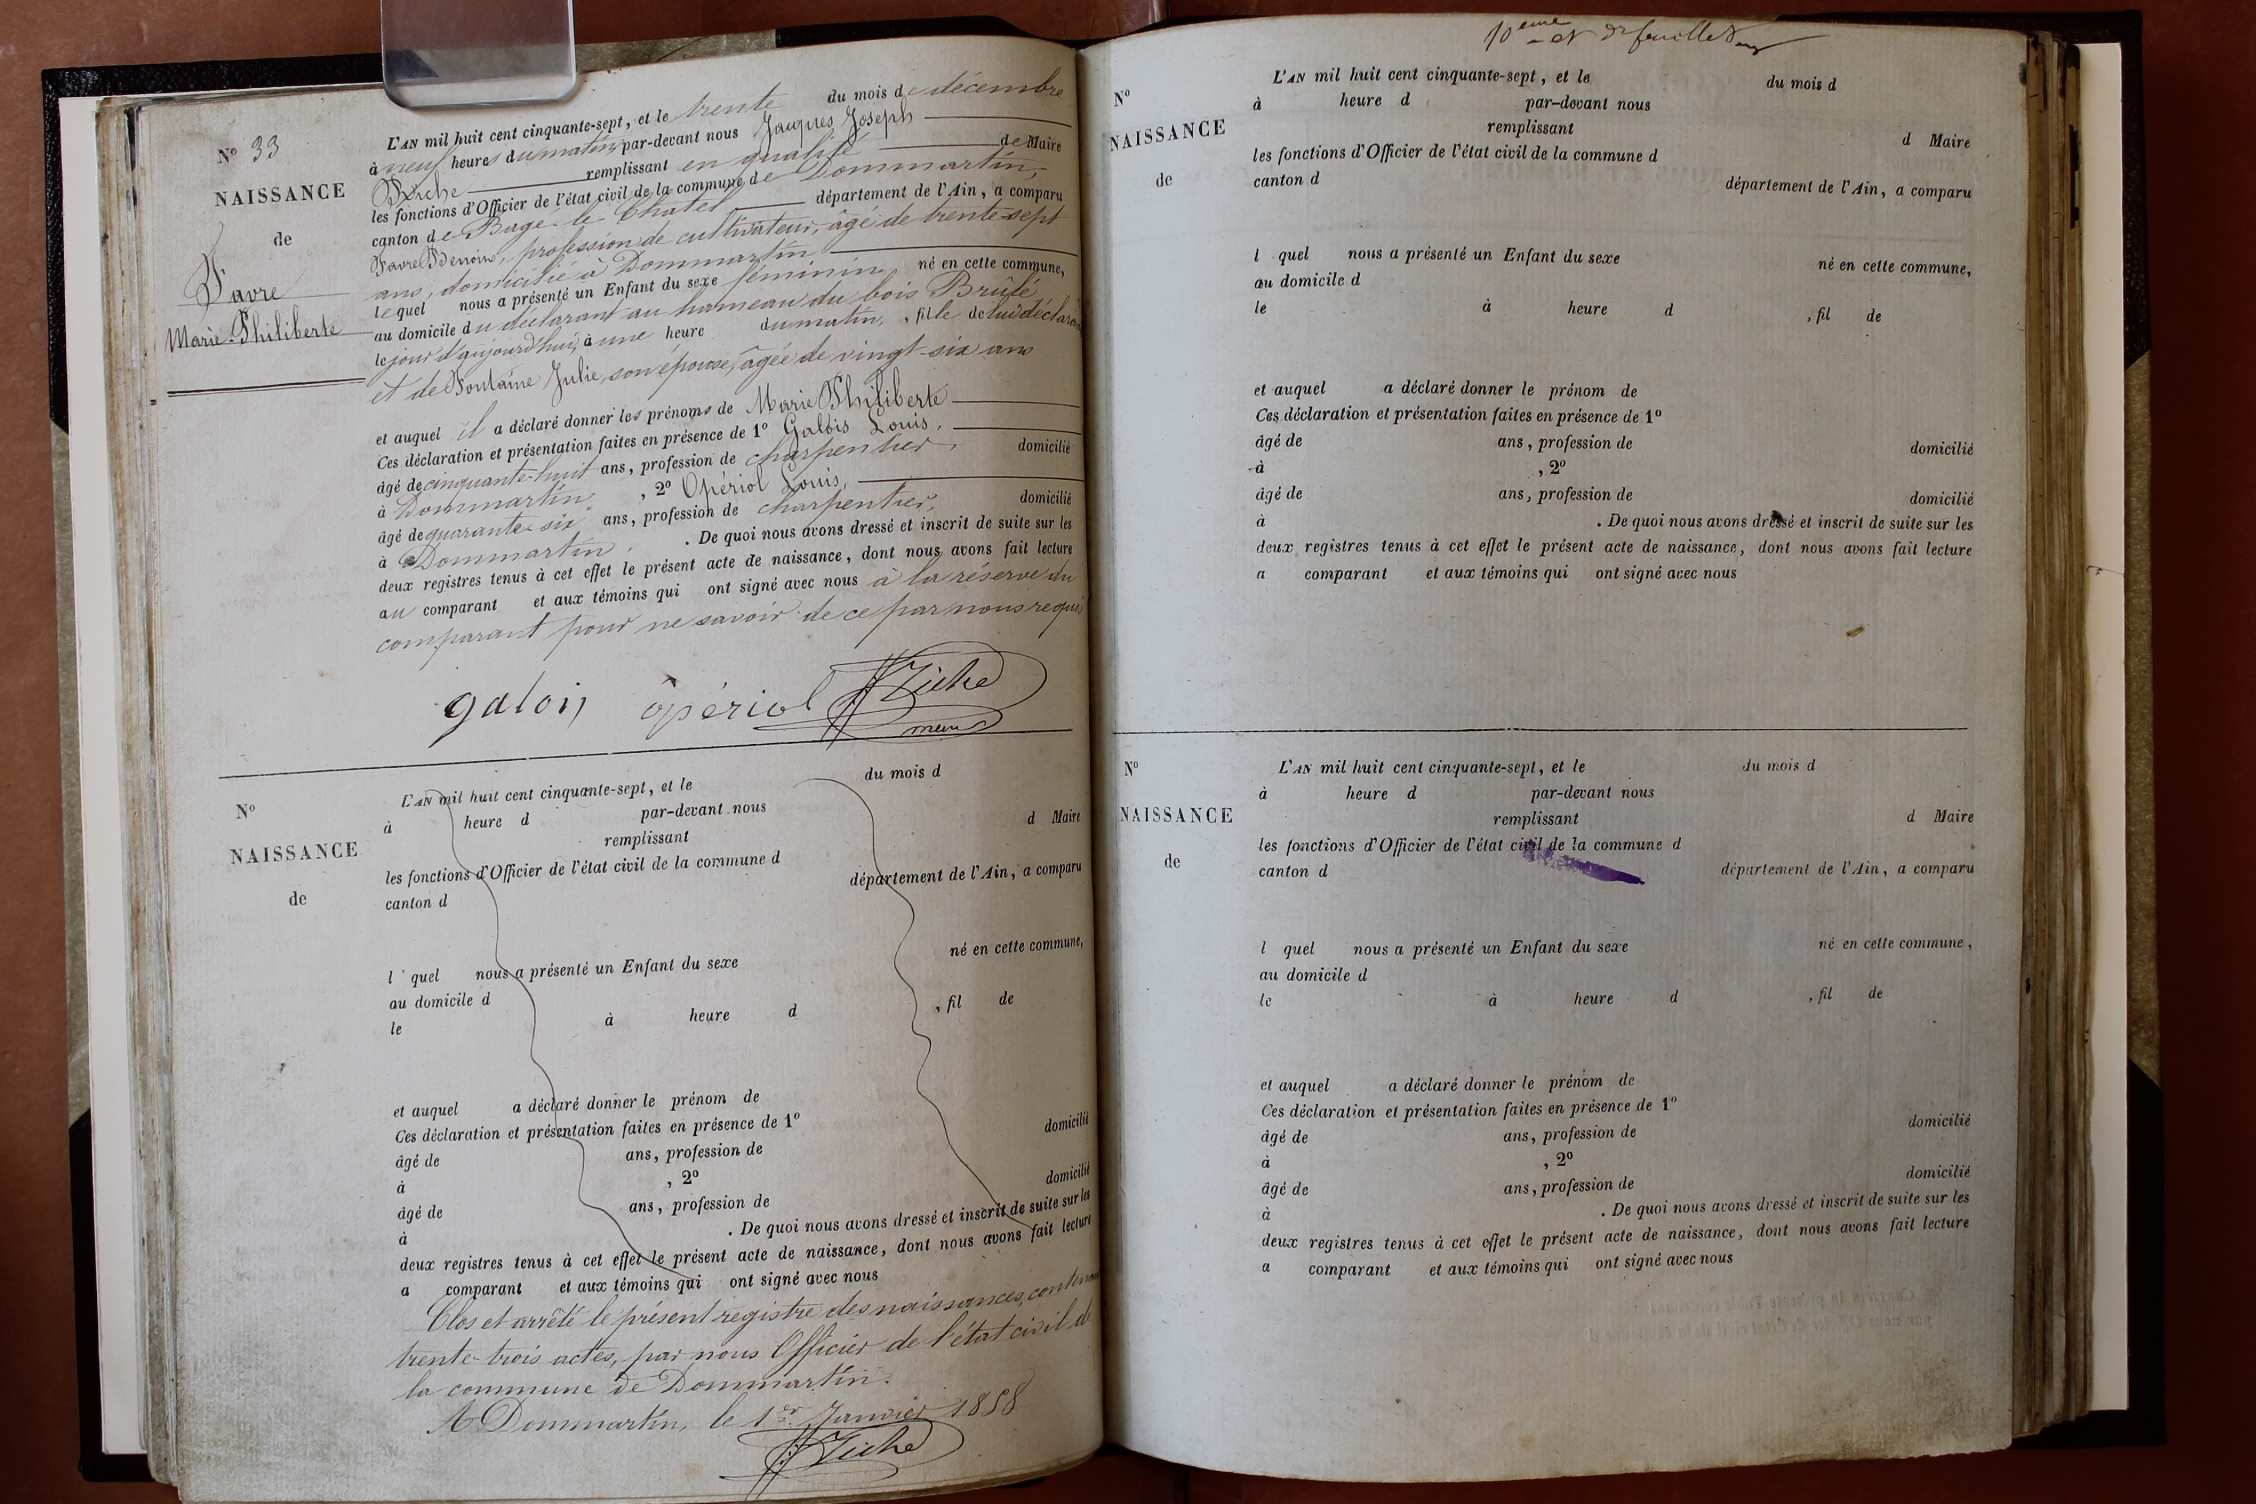 N° 33
NAISSANCE
de
Favre
Marie Philiberte
L'AN mil huit cent cinquante-sept, et le trente du mois de décembre
à neuf heures du matin, par-devant nous Jacques Joseph
remplissant en qualité de Maire
les fonctions d'Officier de l'état civil de la commune de Dommartin,
canton de Bagé-le-Chatel département de l'Ain, a comparu
Favre profession de cultivateur, âgé de trente-sept
ans, domicilié à Dommartin,
lequel nous a présenté un Enfant du sexe féminin né en cette commune,
au domicile du déclarant au hameau du bois Brûlé
le jour d'aujourd'hui, à une heure du matin, fille de lui déclarant
et de Fontaine Julie, son épouse, âgée de vingt-six ans
et auquel il a déclaré donner les prénoms de Marie Philiberte
Ces déclaration et présentation faites en présence de 1° Louis,
âgé de cinquante-huit ans, profession de charpentier, domicilié
à Dommartin, 2° Opériol Louis,
âgé de quarante-six ans, profession de charpentier, domicilié
à Dommartin. De quoi nous avons dressé et inscrit de suite sur les
deux registres tenus à cet effet le présent acte de naissance, dont nous avons fait lecture
au comparant et aux témoins qui ont signé avec nous à la réserve du
comparant pour ne savoir de ce par nous requis
galois opériol
N°
NAISSANCE
de
L'AN mil huit cent cinquante-sept, et le du mois d
à heure d par-devant nous
remplissant d Maire
les fonctions d'Officier de l'état civil de la commune d
canton d département de l'Ain, a comparu
l quel nous a présenté un Enfant du sexe né en cette commune,
au domicile d
le à heure d , fil de
et auquel a déclaré donner le prénom de
Ces déclaration et présentation faites en présence de 1°
âgé de ans, profession de domicilié
à , 2°
âgé de ans, profession de domicilié
à . De quoi nous avons dressé et inscrit de suite sur les
deux registres tenus à cet effet le présent acte de naissance, dont nous avons fait lecture
a comparant et aux témoins qui ont signé avec nous
Clos et arrêté le présent registre des naissances, contenant
trente-trois actes, par nous Officier de l'état civil de
la commune de Dommartin.
A Dommartin, le 1er Janvier 1858
10eme et feuillet
N°
NAISSANCE
de
L'AN mil huit cent cinquante-sept, et le du mois d
à heure d par-devant nous
remplissant d Maire
les fonctions d'Officier de l'état civil de la commune d
canton d département de l'Ain, a comparu
l quel nous a présenté un Enfant du sexe né en cette commune,
au domicile d
le à heure d , fil de
et auquel a déclaré donner le prénom de
Ces déclaration et présentation faites en présence de 1°
âgé de ans, profession de domicilié
à , 2°
âgé de ans, profession de domicilié
à . De quoi nous avons dressé et inscrit de suite sur les
deux registres tenus à cet effet le présent acte de naissance, dont nous avons fait lecture
a comparant et aux témoins qui ont signé avec nous
N°
NAISSANCE
de
L'AN mil huit cent cinquante-sept, et le du mois d
à heure d par-devant nous
remplissant d Maire
les fonctions d'Officier de l'état civil de la commune d
canton d département de l'Ain, a comparu
l quel nous a présenté un Enfant du sexe né en cette commune,
au domicile d
le à heure d , fil de
et auquel a déclaré donner le prénom de
Ces déclaration et présentation faites en présence de 1°
âgé de ans, profession de domicilié
à , 2°
âgé de ans, profession de domicilié
à . De quoi nous avons dressé et inscrit de suite sur les
deux registres tenus à cet effet le présent acte de naissance, dont nous avons fait lecture
a comparant et aux témoins qui ont signé avec nous